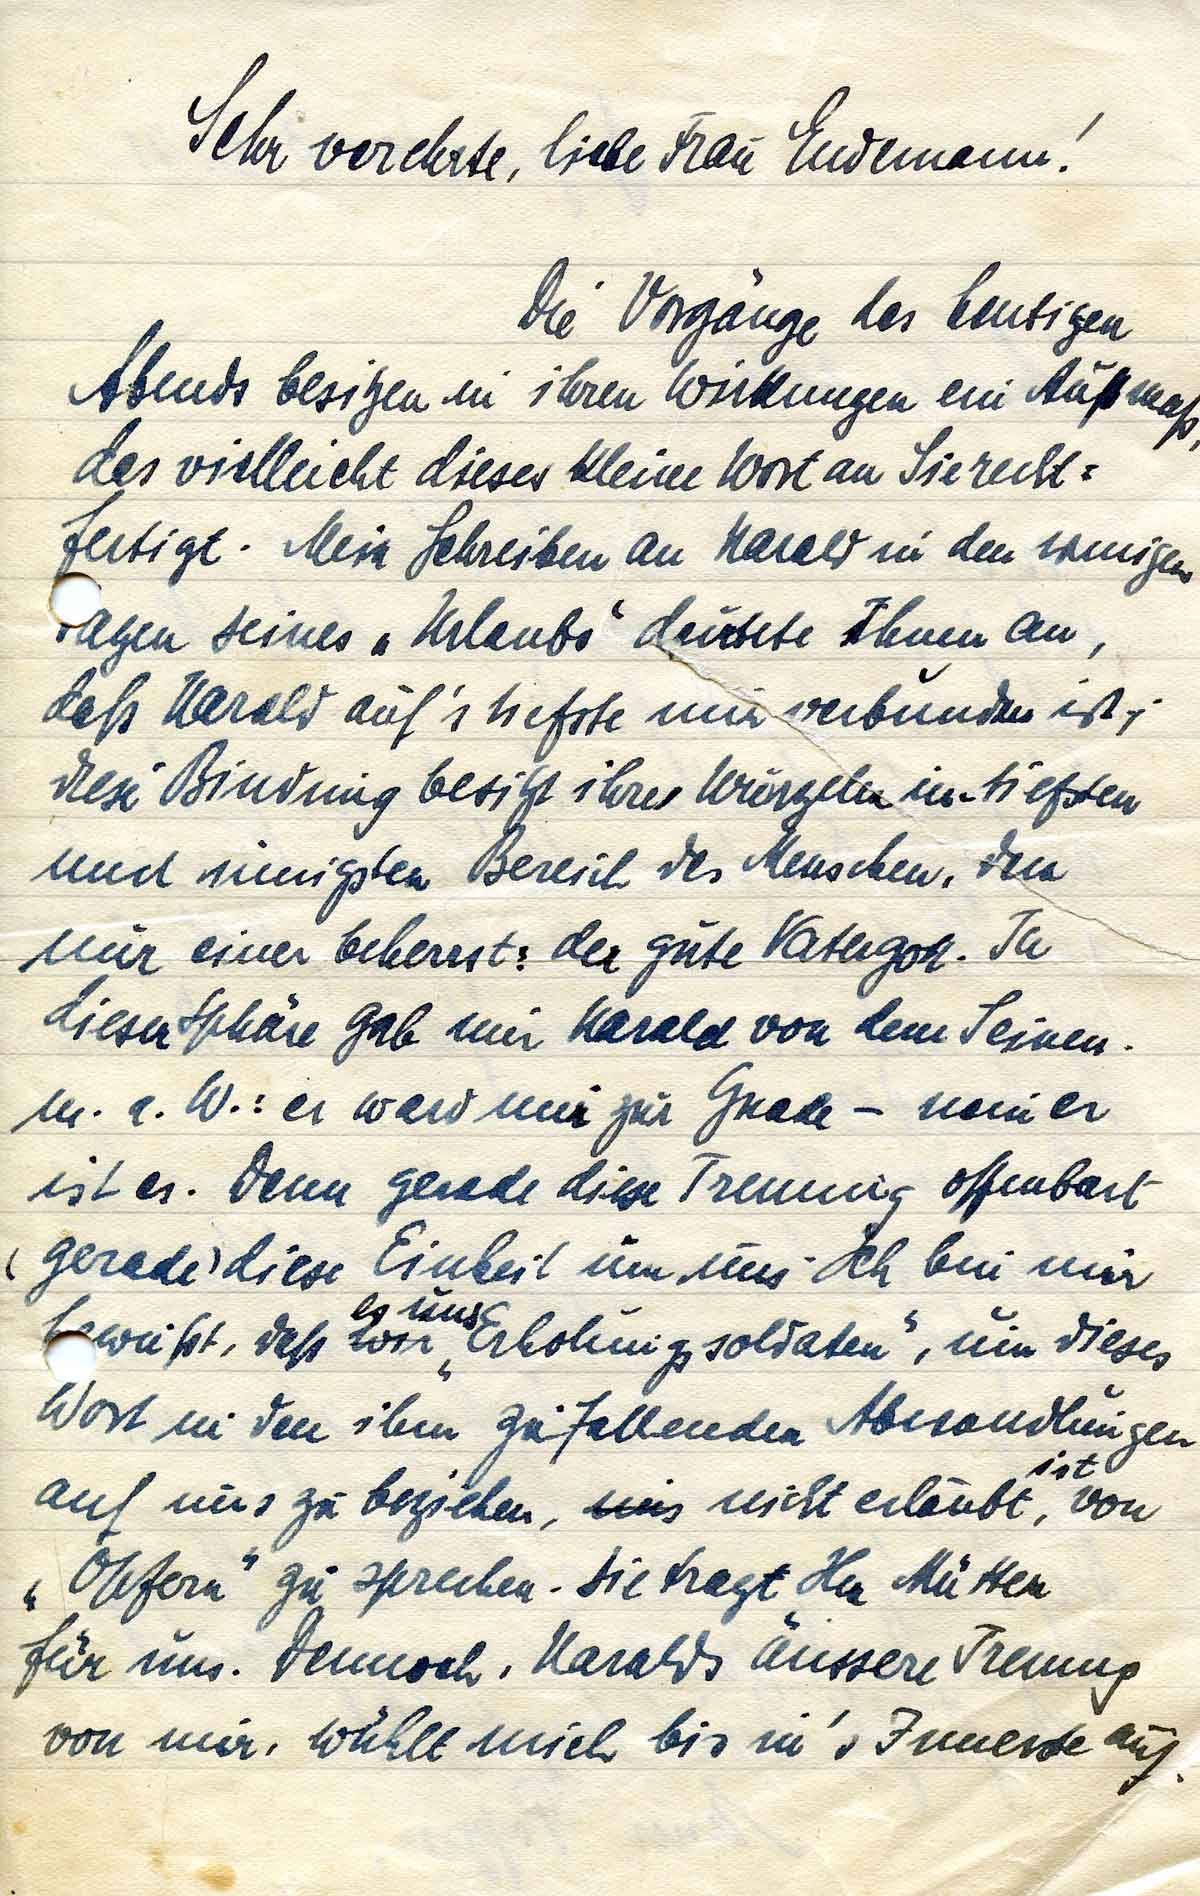 Sehr verehrte, liebe Frau Endemann!
Die Vorgänge des heutigen
Abends besitzen in ihren Wirkungen ein Außmaß,
das vielleicht dieses kleine Wort an Sie recht=
fertigt. Mein Schreiben an Harald in den wenigen
Tagen seines „Urlaubs“ deutete Ihnen an,
daß Harald auf's tiefste mir verbunden ist;
diese Bindung besitzt ihre Wurzeln im tiefsten
und innigsten Bereich des Menschen, den
nur einer beherrst: der gute Vatergott. In
dieser Sphäre gab mir Harald von dem Seinen.
m. a. W.: er ward mir zur Gnade – nein er
ist es. Denn gerade diese Trennung offenbart
(gerade) diese Einheit um uns. Ich bin mir
bewußt, daß wir es uns „Erholungssoldaten“, um dieses
Wort in den ihm zufallenden Abwandlungen
auf uns zu beziehen, uns nicht erlaubt, ist von
„Opfern“ zu sprechen. Sie tragt Ihr Mütter
für uns. Dennoch, Haralds äussere Trennung
von mir, wühlt mich bis in's Innerste auf.